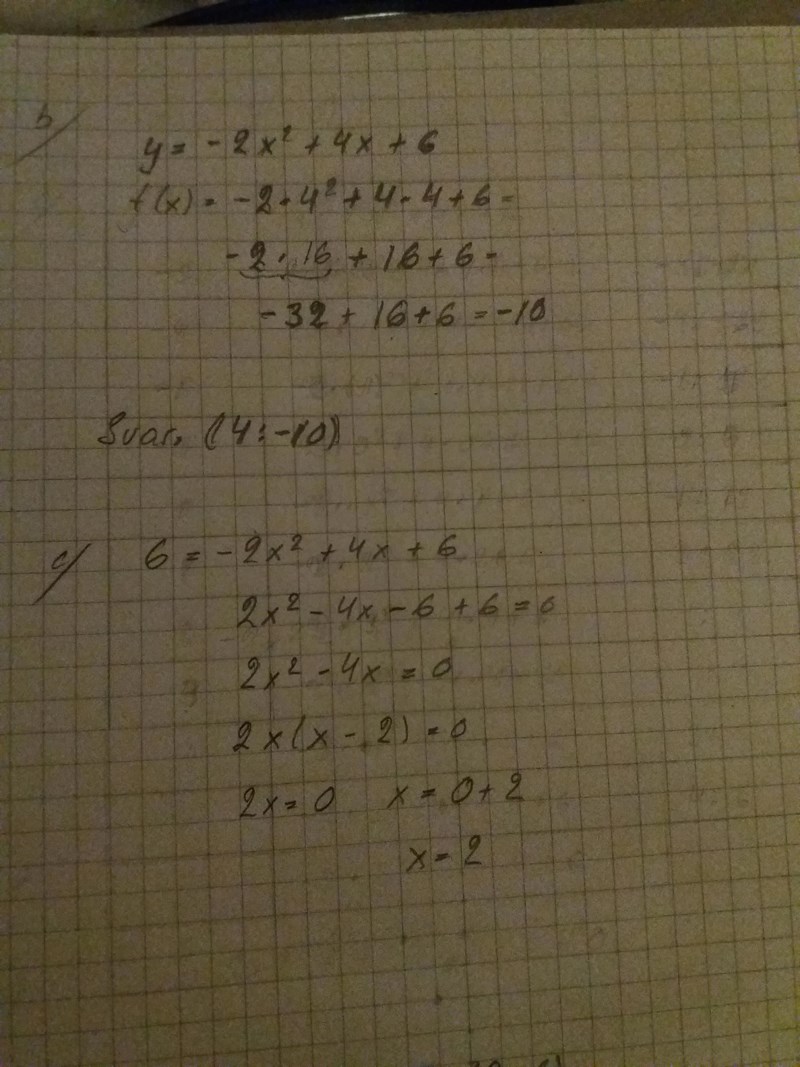 b/
y = -2x² + 4x + 6
f(x) = -2·4² + 4·4 + 6 =
-2·16 + 16 + 6 =
-32 + 16 + 6 = -10
Svar. (4:-10)
c/ 6 = -2x² + 4x + 6
2x² - 4x - 6 + 6 = 0
2x² - 4x = 0
2x(x - 2) = 0
2x = 0 x = 0 + 2
x = 2